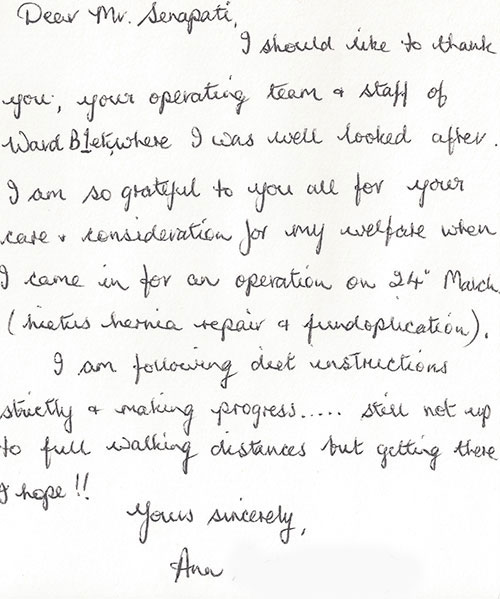 Dear Mr. Senapati,
I should like to thank
you, your operating team & staff of
Ward where I was well looked after.
I am so grateful to you all for your
care & consideration for my welfare when
I came in for an operation on 24" March
(hiatus hernia repair & fundoplication).
I am following diet instructions
strictly & making progress..... still not up
to full walking distances but getting there
I hope!!
Yours sincerely,
Ana